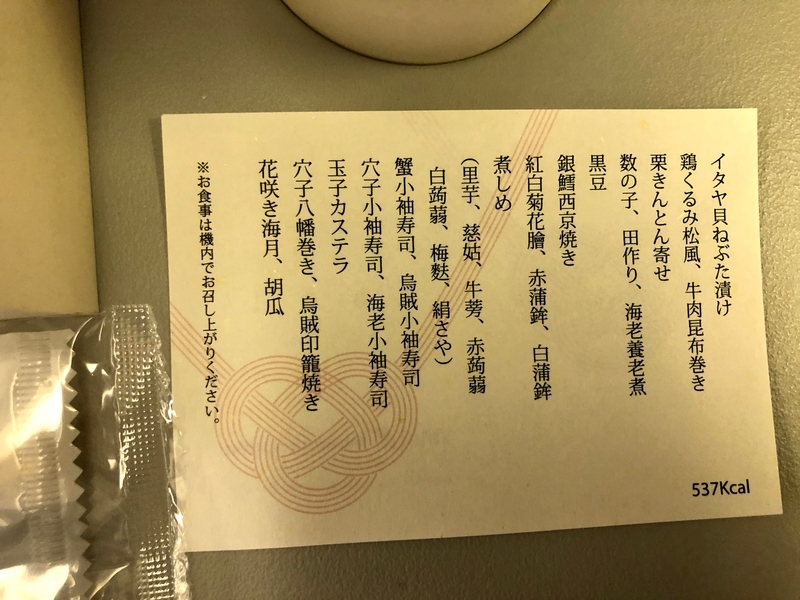 イタヤ貝ねぶた漬け
鶏くるみ松風、牛肉昆布巻き
栗きんとん寄せ
数の子、田作り、海老養老煮
黒豆
銀鱈西京焼き
紅白菊花膾、赤蒲鉾、白蒲鉾
煮しめ
(里芋、慈姑、牛蒡、赤蒟蒻
白蒟蒻、梅麩、絹さや)
蟹小袖寿司、烏賊小袖寿司
穴子小袖寿司、海老小袖寿司
玉子カステラ
穴子八幡巻き、烏賊印籠焼き
花咲き海月、胡瓜
※お食事は機内でお召し上がりください。
537Kcal